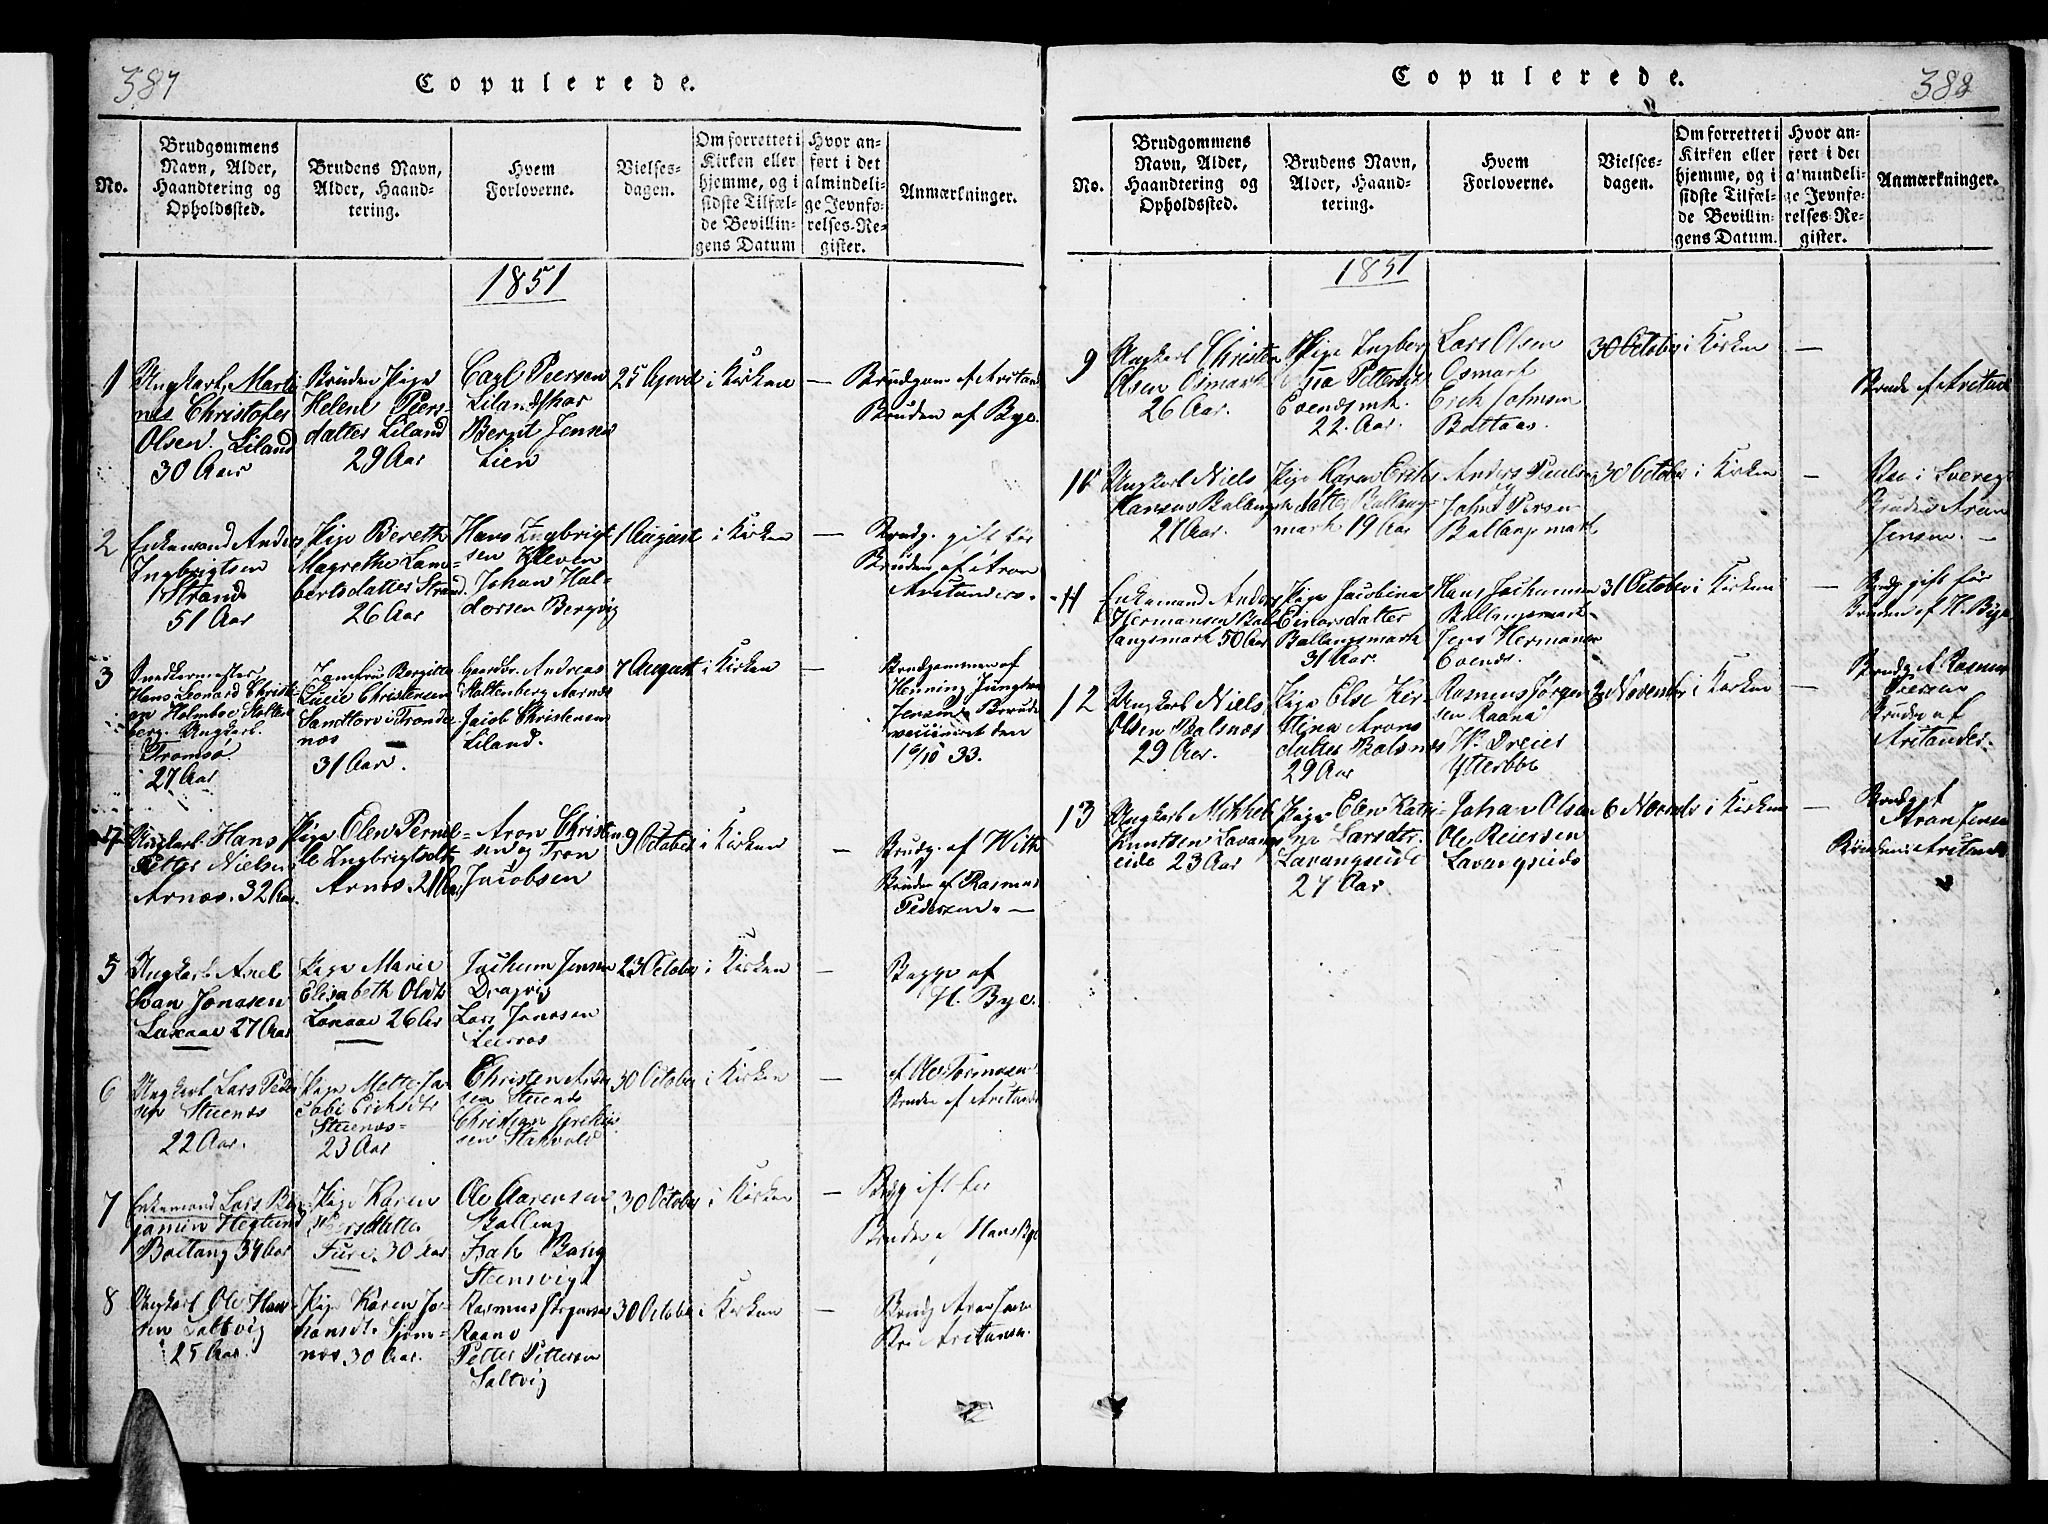 387
Copulerede.
No.
Brudgommens
Navn, Alder,
Haandtering og
Opholdssted.
Brudens Navn,
Alder, Haand-
tering.
Hvem
Forloverne.
Vielses-
dagen.
Om forrettet i
Kirken eller
hjemme, og i
sidste Tilfæl-
de Bevillin-
gens Datum
Hvor an-
ført i det
almindeli-
ge Jevnfø-
relses-Re-
gister.
Anmærkninger.
1851
1
Ungkarl Marti
nus Christofer
Olsen Liland
30 Aar
Bruden Pige
Helene Peers-
datter Liland
29 Aar
Carl Peersen
Lilandskar
Bernt Jensen
Lien
25 April
i Kirken
—
Brudgom af Aristand
Bruden af Bye.
2
Enkemand Anders
Ingbrigtsen
Strand
51 Aar
Pige Bereth
Magrethe Lam-
bertsdatter Strand
26 Aar
Hans Ingbrigt
sen Kleven
Johan Hal-
dorsen Bergvig
1 August
i Kirken
—
Brudg. gift før
Bruden af Aron
Aristanders.
3
Snedkermester
Hans Leonard Christi
an Holmboe Stolten
berg. Ungkarl.
Tromsø.
27 Aar
Jomfru Bergitte
Lucie Christensen
Sandtorv i Tronde
nes
31 Aar.
Gaardbr. Andreas
Stoltenberg Aarnes
Jacob Christensen
Liland.
7 August
i Kirken
—
Brudgommen af
Henning Junghans
Jensen Brude
vaccineret den
16/10 33.
4
Ungkarl Hans
Petter Nielsen
Arnæs. 32 Aar.
Pige Elen Pernil-
le Ingbrigtsdtr
Arnæs. 21 Aar
Aron Christen
sen og Tron
Jacobsen
9 October
i Kirken
—
Brudg. af With
Bruden af Rasmus
Pedersen. —
5
Ungkarl Axel
Ivan Jonasen
Laxaae 27 Aar
Pige Marie
Elisabeth Olsdtr
Laxaae 26 Aar
Jochum Jensen
Dragvig
Lars Jonasen
23 October
i Kirken
—
Begge af
H. Bye.
6
Ungkarl Lars Peder
sen Steenæs
22 Aar.
Pige Mette Ja-
cobi Erichsdtr
Steenæs-
23 Aar
Christen Ander
sen Steenæs
Christian
sen Stakvold
30 October
i Kirken
—
af Ole Tormosen
Bruden af Aristand
7
Enkemand Lars Ben
jamin Heglund
Boltang 34 Aar
Pige Karen
Persdatter
Fure. 30 Aar
Ole Aarensen
Balling
Isak Bang
Steensvigt
30 October
i Kirken
—
Brudg gift før
Bruden af Hans Bye
8
Ungkarl Ole Han-
sen Saltvig
25 Aar.
Pige Karen Jo-
hansdtr Sjøm-
næs 30 Aar.
Rasmus Jørgensen
Raanø
Petter Pettersen
Saltvig
30 October
i Kirken
—
Brudg Aron Jense
Bru Aristander
388
Copulerede.
No.
Brudgommens
Navn, Alder,
Haandtering og
Opholdssted.
Brudens Navn,
Alder, Haand-
tering.
Hvem
Forloverne.
Vielses-
dagen.
Om forrettet i
Kirken eller
hjemme, og i
sidste Tilfæl-
de Bevillin-
gens Datum.
Hvor an-
ført i det
almindeli-
ge Jevnfø-
relses-Re-
gister.
Anmærkninger.
1851
9
Ungkarl Christen
Olsen Osmark
26 Aar.
Pige Ingberg
Ana Pettersdtr
Evendsmk.
22. Aar.
Lars Olsen
Osmark
Erik Johnsen
Boltaas.
30 October
i Kirken
—
Brude af Aristande
10
Ungkarl Niels
Hansen Ballangs
21 Aar.
Pige Karen Erichs
datter Ballangs-
mark 19 Aar
Anders Paulsen
John Persen
Ballangsmark
30 October
i Kirken
—
Vac i Sverrig
Bruden Aron
Jensen. —
11
Enkemand Anders
Hermansen Bal
langsmark 50 Aar
Pige Jacobina
Einarsdatter
Ballangsmark
31 Aar.
Hans Jochumsen
Ballangsmark
Jens Hermansen
Evenes.
31 October
i Kirken
—
Brudg gift før
Bruden af H. Bye
12
Ungkarl Niels
Olsen Balsnæs
29 Aar.
Pige Else Kir-
stina Arons
datter Balsnæs
29 Aar
Rasmus Jørgen
sen Raanø
W. Dreier
Ytterboe
3 November
i Kirken
—
Brudg Af Rasmus
Peersen
Bruden af
Aristander.
13
Ungkarl Mikkel
Knutsen Lavangs
eide 23 Aar
Pige Elen Katri-
ne Larsdtr.
Lavangseide
27 Aar.
Johan Olsen
Ole Reiersen
Lavangseide
6 Novemb
i Kirken
—
Brudg af
Aron Jensen
Bruden: Aristande